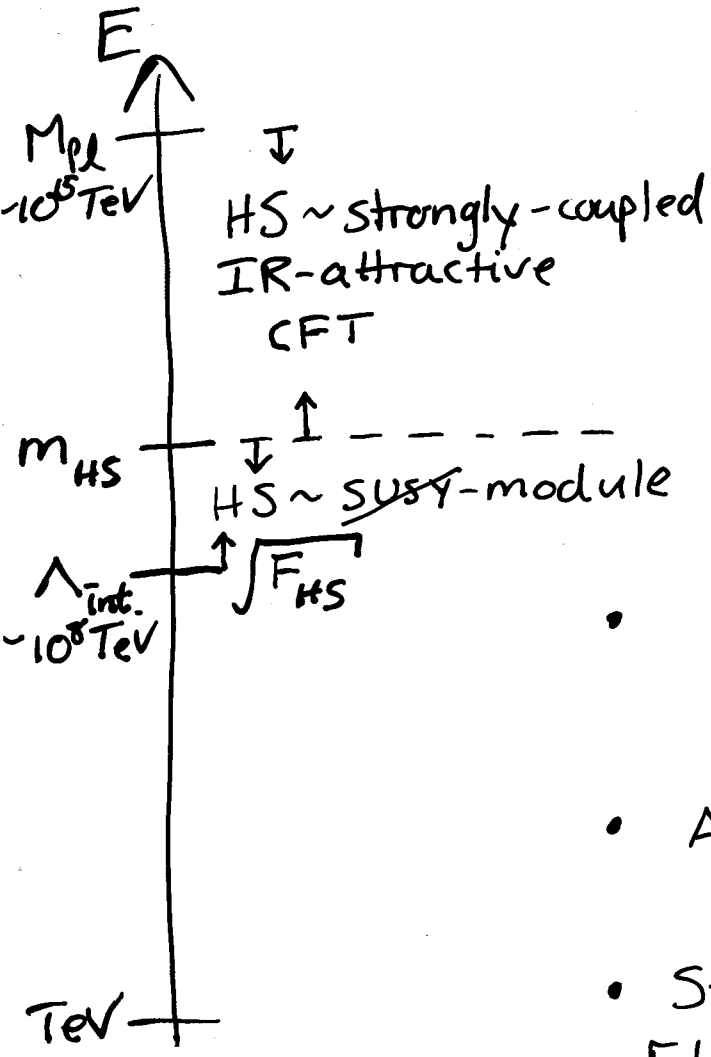 E
M_Pl
~10^15 TeV
HS ~ strongly-coupled
IR-attractive
CFT
m_HS
HS ~ SUSY-module
Λ_int.
√F_HS
~10^8 TeV
TeV